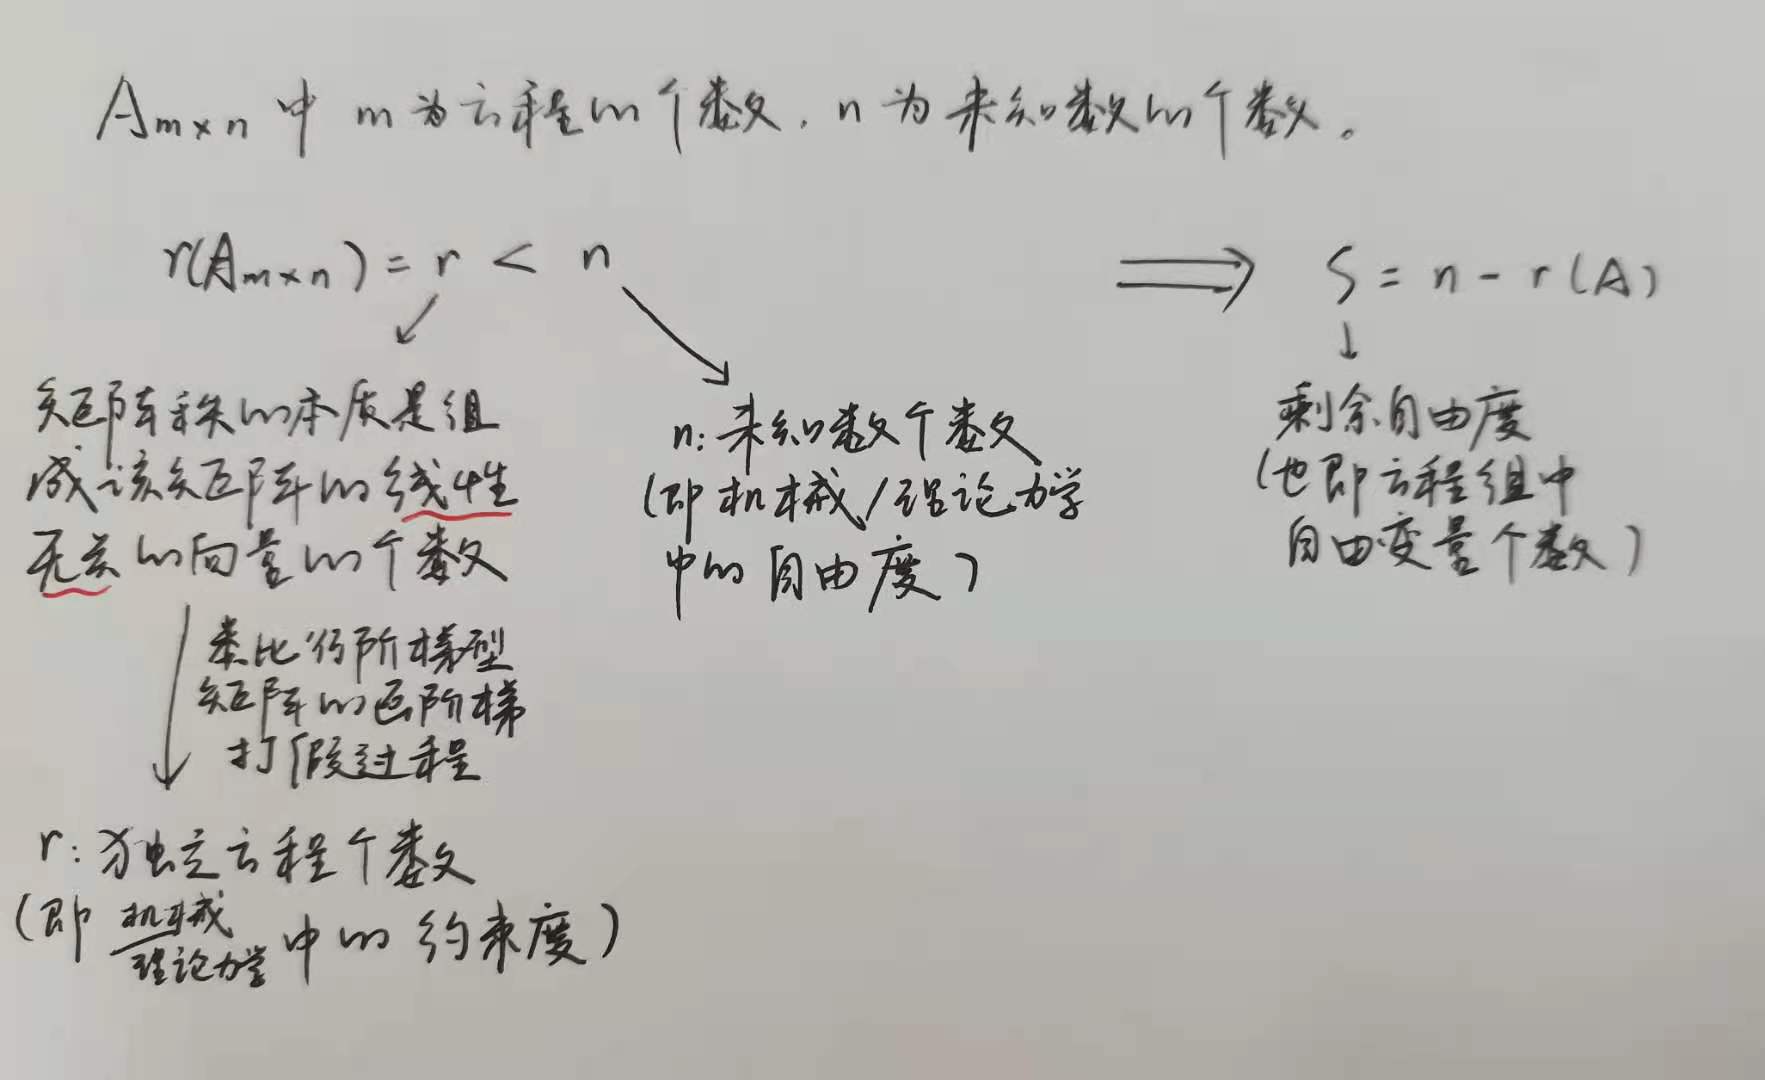 Am×n中 m为方程的个数，n为未知数的个数。
r(Am×n) = r < n ⟹ S = n - r(A)
矩阵秩的本质是组
成该矩阵的线性
无关的向量的个数
类比行阶梯型
矩阵的画阶梯
打假过程
r: 独立方程个数
(即 机械/理论力学 中的 约束度)
n: 未知数个数
(即机械/理论力学
中的 自由度)
剩余自由度
(也即方程组中
自由变量个数)